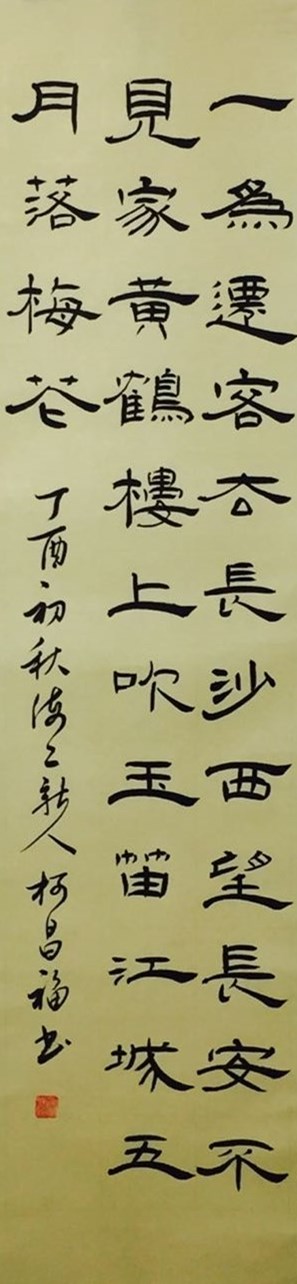 一為遷客去長沙西望長安不
見家黃鶴樓上吹玉笛江城五
月落梅花
丁酉初秋海上新人柯昌福书